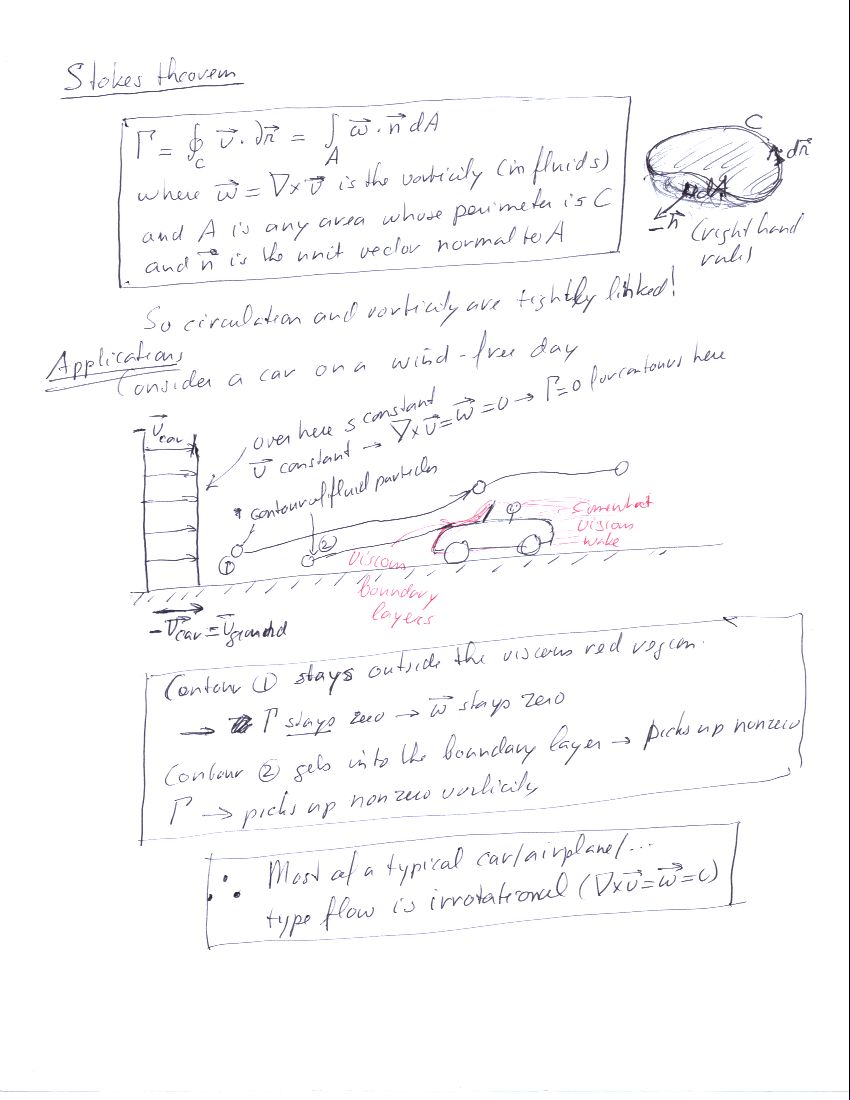 Stokes theorem
Γ = ∮_C v⃗ · dr⃗ = ∫_A ω⃗ · n⃗ dA
where ω⃗ = ∇×v⃗ is the vorticity (in fluids)
and A is any area whose perimeter is C
and n⃗ is the unit vector normal to A
C
dr⃗
dA
n⃗
(right hand
rule)
So circulation and vorticity are tightly linked!
Applications
Consider a car on a wind-free day
-v⃗car
over here s constant
v⃗ constant → ∇×v⃗ = ω⃗ = 0 → Γ=0 for contours here
contour of fluid particles
①
②
viscous
boundary
layers
somewhat
viscous
wake
-v⃗car = v⃗ground
Contour ① stays outside the viscous red region.
→ Γ stays zero → ω⃗ stays zero
Contour ② gets into the boundary layer → picks up nonzero
Γ → picks up nonzero vorticity
∴ Most of a typical car/airplane/...
type flow is irrotational (∇×v⃗=ω⃗=0)